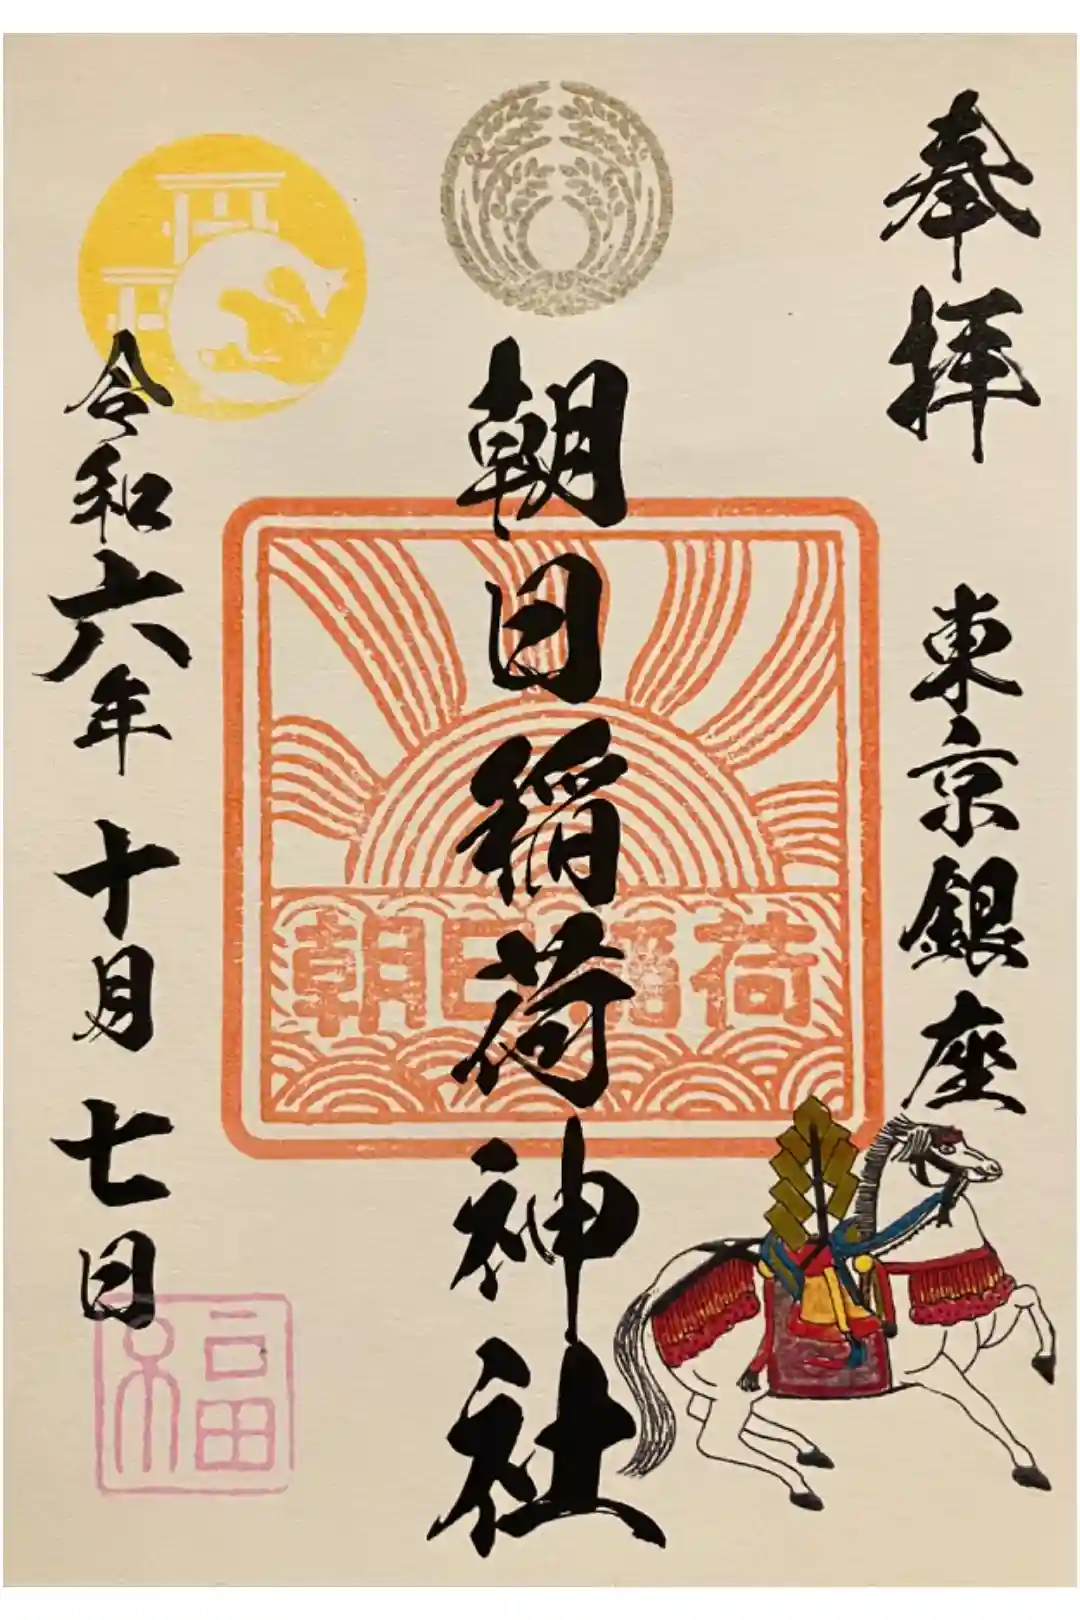 奉拝
東京銀座
朝日稲荷神社
朝日稲荷
令和六年十月七日
福